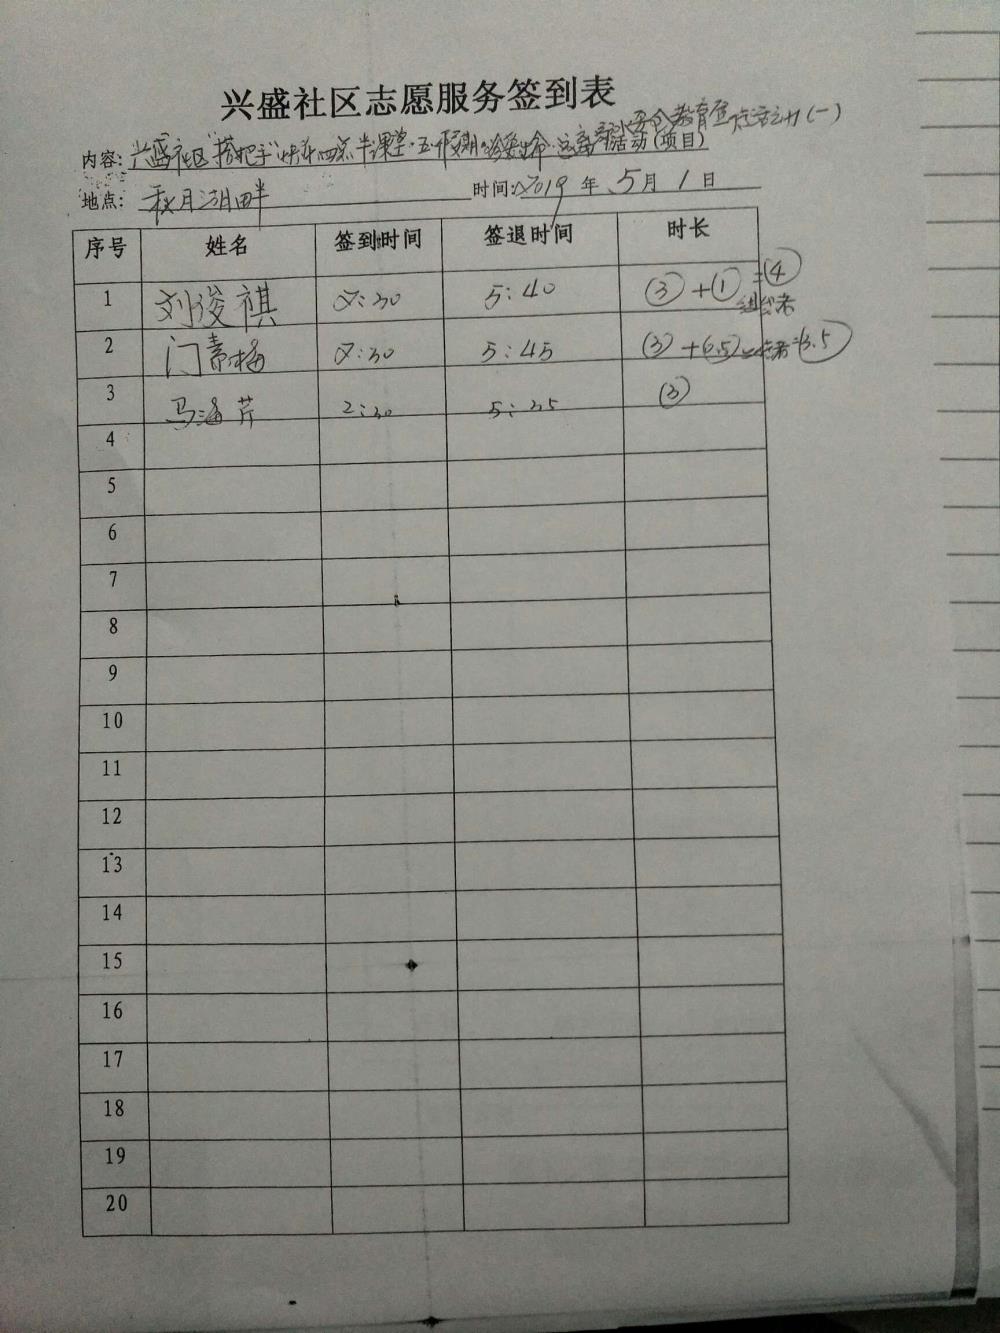 兴盛社区志愿服务签到表
安全教育宣传活动(一)
内容: 兴盛社区"搭把手"快乐四点半课堂·五一假期"珍爱生命·远离 活动(项目)
地点: 秋月湖畔 时间: 2019 年 5 月 1 日
序号 姓名 签到时间 签退时间 时长
1 刘俊祺 2:30 5:40 ③+①=④
组织者
2 门素梅 2:30 5:45 ③+0.5 =3.5
3 马海芹 2:30 5:35 ③
4
5
6
7
8
9
10
11
12
13
14
15
16
17
18
19
20